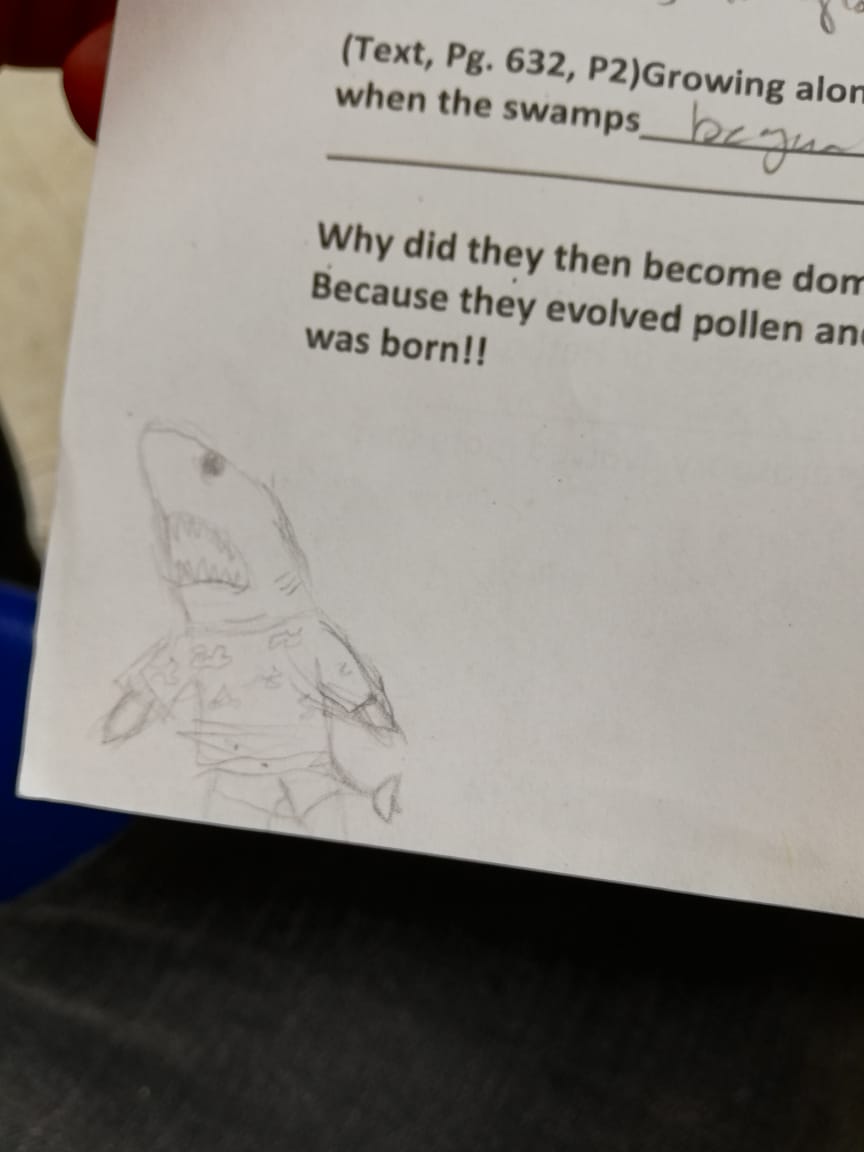 (Text, Pg. 632, P2)Growing alon
when the swamps begun
Why did they then become dom
Because they evolved pollen and
was born!!